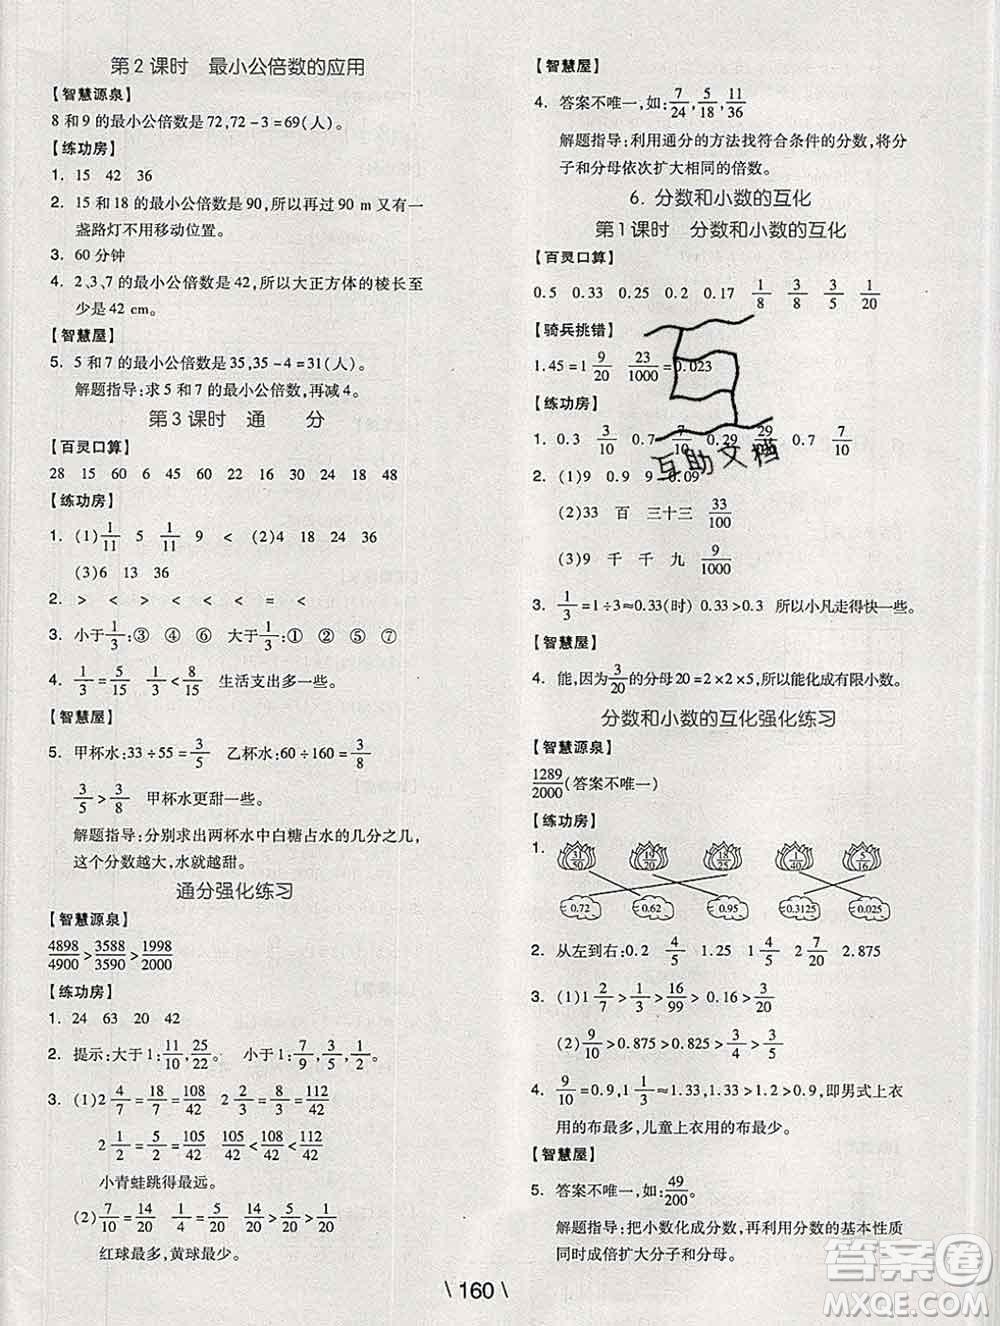 第2课时 最小公倍数的应用
【智慧源泉】
8和9的最小公倍数是72,72-3=69(人)。
【练功房】
1. 15 42 36
2. 15和18的最小公倍数是90,所以再过90 m又有一
盏路灯不用移动位置。
3. 60分钟
4. 2、3、7的最小公倍数是42,所以大正方体的棱长至
少是42 cm。
【智慧屋】
5. 5和7的最小公倍数是35,35-4=31(人)。
解题指导:求5和7的最小公倍数,再减4。
第3课时 通 分
【百灵口算】
28 15 60 6 45 60 22 16 24 18 48
【练功房】
1. (1)1/11 5 1/11 9 < (2)4 18 24 36
(3)6 13 36
2. > < > < < < = <
3. 小于1/3:③ ④ ⑥ 大于1/3:① ② ⑤ ⑦
4. 1/3=5/15 1/3<8/15 生活支出多一些。
【智慧屋】
5. 甲杯水:33÷55=3/5 乙杯水:60÷160=3/8
3/5>3/8 甲杯水更甜一些。
解题指导:分别求出两杯水中白糖占水的几分之几,
这个分数越大,水就越甜。
通分强化练习
【智慧源泉】
4898/4900>3588/3590>1998/2000
【练功房】
1. 24 63 20 42
2. 提示:大于1:11/10,25/22。 小于1:7/9,3/5,1/2。
3. (1)2 4/7=18/7=108/42 2 2/3=8/3=112/42
2 1/2=5/2=105/42 105/42<108/42<112/42
小青蛙跳得最远。
(2)7/10=14/20 1/4=5/20 14/20>6/20>5/20
红球最多,黄球最少。
【智慧屋】
4. 答案不唯一,如:7/24,5/18,11/36
解题指导:利用通分的方法找符合条件的分数,将分
子和分母依次扩大相同的倍数。
6. 分数和小数的互化
第1课时 分数和小数的互化
【百灵口算】
0.5 0.33 0.25 0.2 0.17 1/8 3/8 3/5 1/20
【骑兵挑错】
1.45=1 9/20 23/1000=0.023
【练功房】
1. 0.3 3/10 0.7 7/10 0.29 29/100 0.7 7/10
2. (1)9 0.9 9 0.09
(2)33 百 三十三 33/100
(3)9 千 千 九 9/1000
3. 1/3=1÷3≈0.33(时) 0.33>0.3 所以小凡走得快一些。
【智慧屋】
4. 能,因为3/20的分母20=2×2×5,所以能化成有限小数。
分数和小数的互化强化练习
【智慧源泉】
1289/2000(答案不唯一)
【练功房】
1. 31/50 19/20 18/25 1/40 5/16
0.72 0.62 0.95 0.3125 0.025
2. 从左到右:0.2 4/5 1.25 2 7/20 2.875
3. (1)1 2/7>1/3>16/99>0.16>3/20
(2)9/10>0.875>0.825>3/4>3/5
4. 9/10=0.9,1 1/3≈1.33,1.33>1.2>0.9,即男式上衣
用的布最多,儿童上衣用的布最少。
【智慧屋】
5. 答案不唯一,如:49/200。
解题指导:把小数化成分数,再利用分数的基本性质
同时成倍扩大分子和分母。
\ 160 \
互助文档
答案圈
MXQE.COM